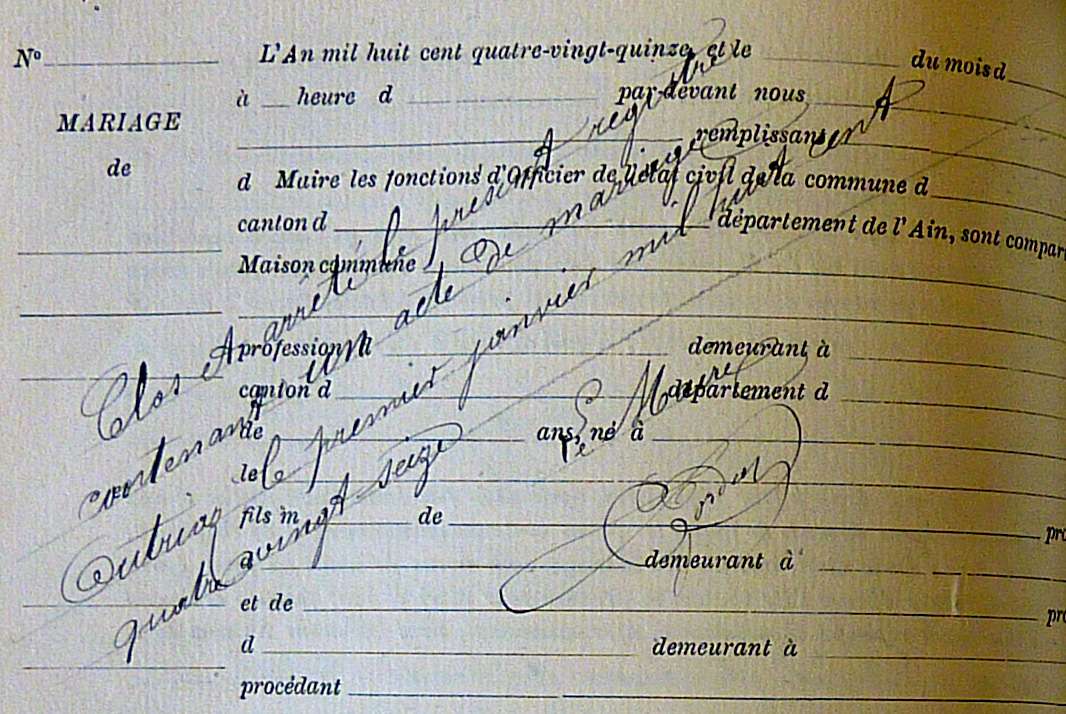 N°
L'An mil huit cent quatre-vingt-quinze, et le du mois d
à heure d par-devant nous
MARIAGE
remplissant
de
d Maire les fonctions d'Officier de l'état civil de la commune d
canton d département de l'Ain, sont compar
Maison commune
profession d demeurant à
canton d département d
de ans, né à
le
fils m de pro
d demeurant à
et de pro
d demeurant à
procédant
Clos et arrêté le présent registre
contenant un acte de mariage
Outriaz le premier janvier mil huit cent
quatre vingt seize
Le Maire